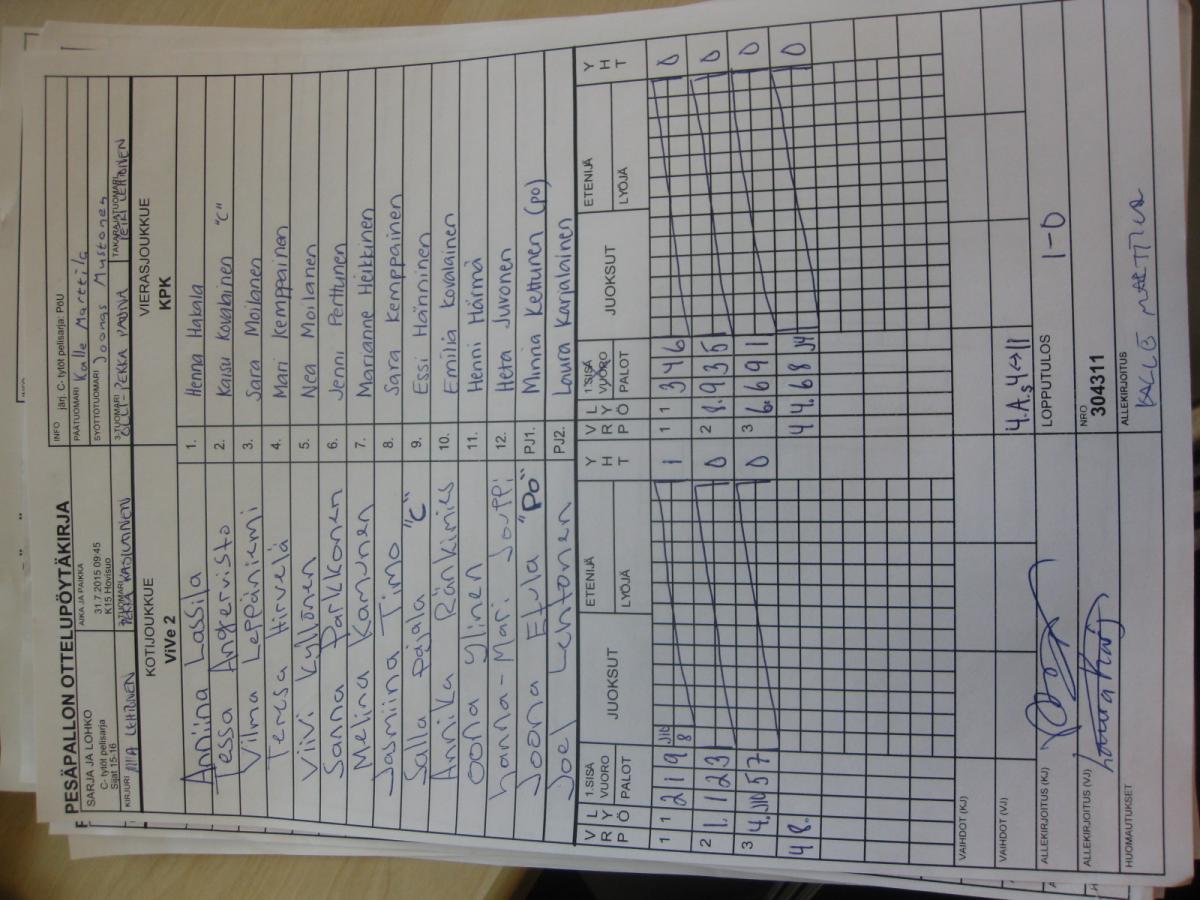 PESÄPALLON OTTELUPÖYTÄKIRJA
SARJA JA LOHKO
C- tytöt pelisarja
Sijat 15-16
AIKA JA PAIKKA
31.7.2015 09:45
K15 Hovisuo
INFO järj. C- tytöt pelisarja: PöU
PÄÄTUOMARI Kalle Marttila
SYÖTTÖTUOMARI Joonas Mustonen
KIRJURI MIIA LEHTONEN
2-TUOMARI
3-TUOMARI OLLI-PEKKA
TAKARAJATUOMARI LEHTONEN
KOTIJOUKKUE
ViVe 2
VIERASJOUKKUE
KPK
Anniina Lassila 1. Henna Hakala
Tessa Angervisto 2. Kaisu Kovalainen "C"
Vilma Leppäniemi 3. Sara Moilanen
Teresa Hirvelä 4. Mari Kemppainen
Viivi Kyllönen 5. Nea Moilanen
Sanna Parkkonen 6. Jenni Perttunen
Melina Kamunen 7. Marianne Heikkinen
Jasmiina Timo 8. Sara Kemppainen
Salla Pajala "C" 9. Essi Hänninen
Annika Ränkimies 10. Emilia Kovalainen
Oona Ylinen 11. Henni Härmä
hanna-Mari Jouppi 12. Heta Juvonen
Joona Etula "Po" PJ1. Minna Kettunen (po)
Joel Lehtonen PJ2. Laura Karjalainen
V R L Y P Ö 1.SISÄ VUORO PALOT JUOKSUT ETENIJÄ LYÖJÄ Y H T V R L Y P Ö 1.SISÄ VUORO PALOT JUOKSUT ETENIJÄ LYÖJÄ Y H T
1 1 2 1 9 8 1 1 1 3 4 6 0
2 1. 1 2 3 0 2 8. 9 3 5 0
3 4. 5 7 0 3 6. 6 9 1 0
4 8. 4 4. 6 8 0
VAIHDOT (KJ)
VAIHDOT (VJ) 4.A. 4↔11
ALLEKIRJOITUS (KJ)
LOPPUTULOS 1-0
ALLEKIRJOITUS (VJ) Laura Karj
NRO
304311
HUOMAUTUKSET
ALLEKIRJOITUS
KALLE MARTTILA